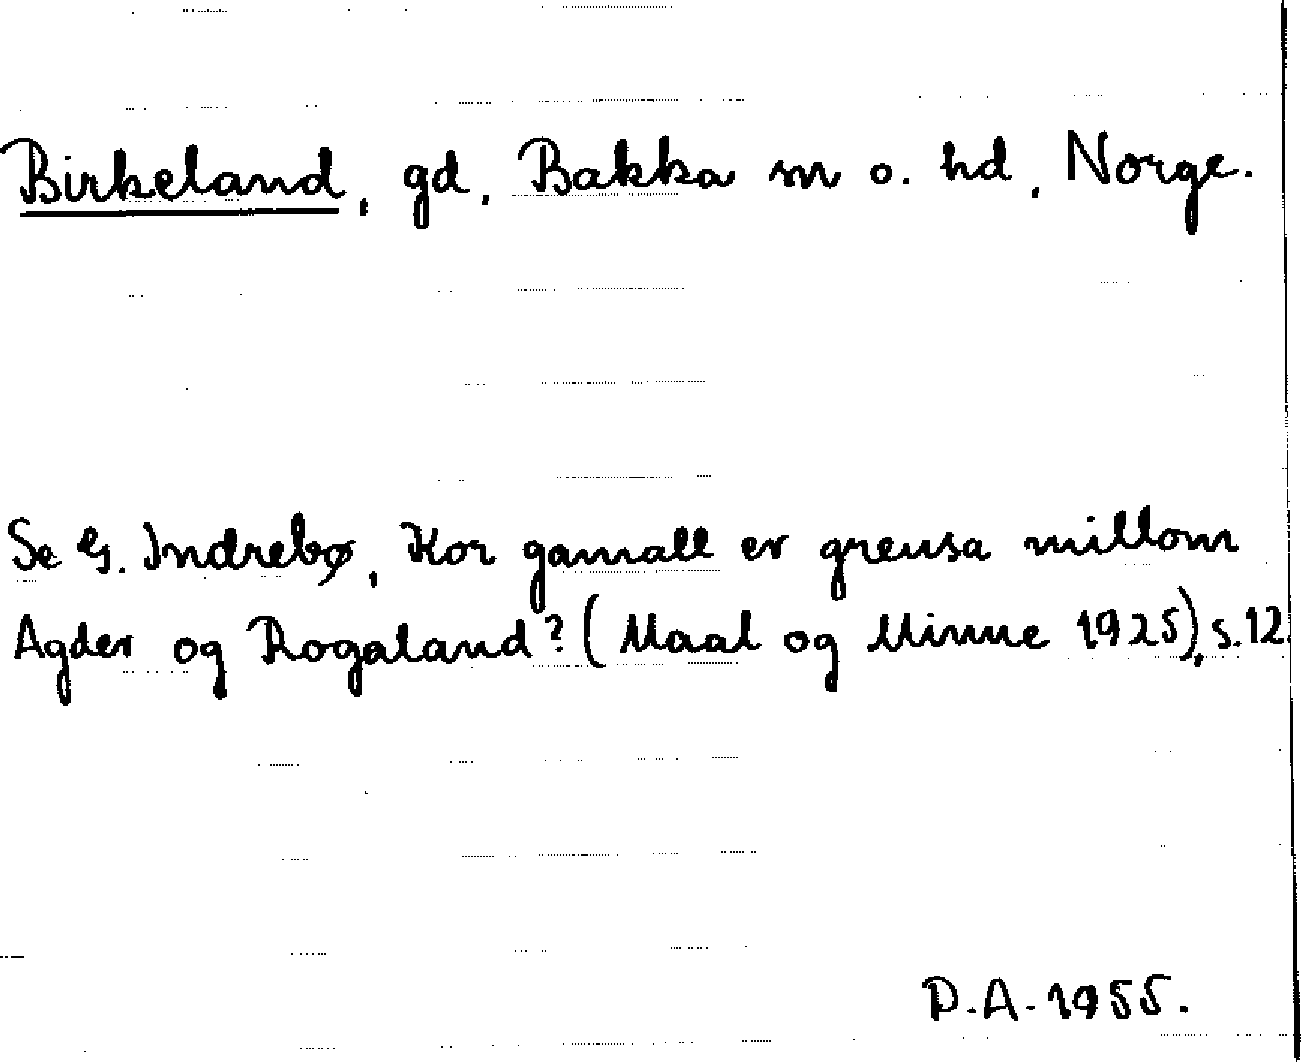 Birkeland, gd, Bakka sn o. hd, Norge.
Se G. Indrebø, Kor gamall er grensa millom
Agder og Rogaland? (Maal og Minne 1925), s. 12.
P.A. 1955.